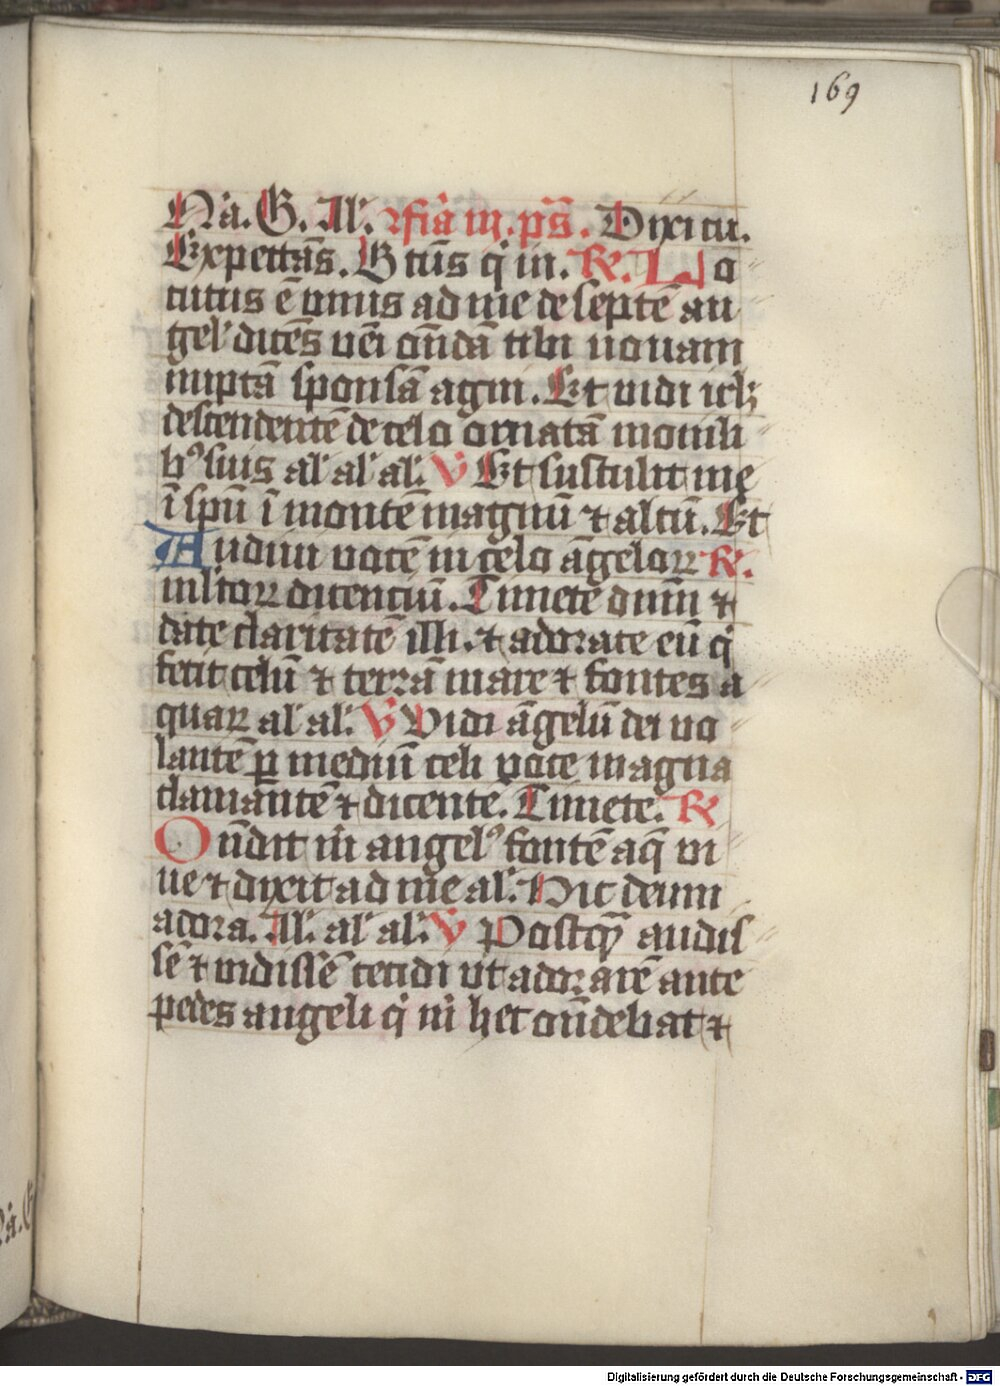 169
Na. G. Al'. ꝛfia iij. ps̄. Dixi cu.
Expectās. Btūs q̇ in. R̷. Lo
cutus ē vnus ad me de septē an
gel' dicēs veī on̄dā tibi nouam
nuptā sponsā agni. Et vidi irlꝫ
descendentē de celo ornatā monili
bꝰ suis al' al' al'. V̷ Et sustulit me
ī spū ī montē magnū ⁊ altū. Et
Audiui vocē in celo āgeloꝝ R̷.
mltoꝝ dicenciū. Timete dnm̄ ⁊
date claritatē illi. ⁊ adorate eū q̇
fecit celū ⁊ terrā mare ⁊ fontes a
quaꝝ al' al'. V̷ Vidi āgelū dei vo
lantē ꝑ mediū celi voce magna
clamantē ⁊ dicentē. Timete. R̷
On̄dit m̄ angelꝰ fontē aq̄ vi
ue ⁊ dixit ad me al'. Hic deum
adora. Al'. al' al'. V̷ Postqꝫ audis
sē ⁊ vidissē cecidi vt adorarē ante
pedes angeli q̇ m̄ hec on̄debat ⁊
Digitalisierung gefördert durch die Deutsche Forschungsgemeinschaft - DFG